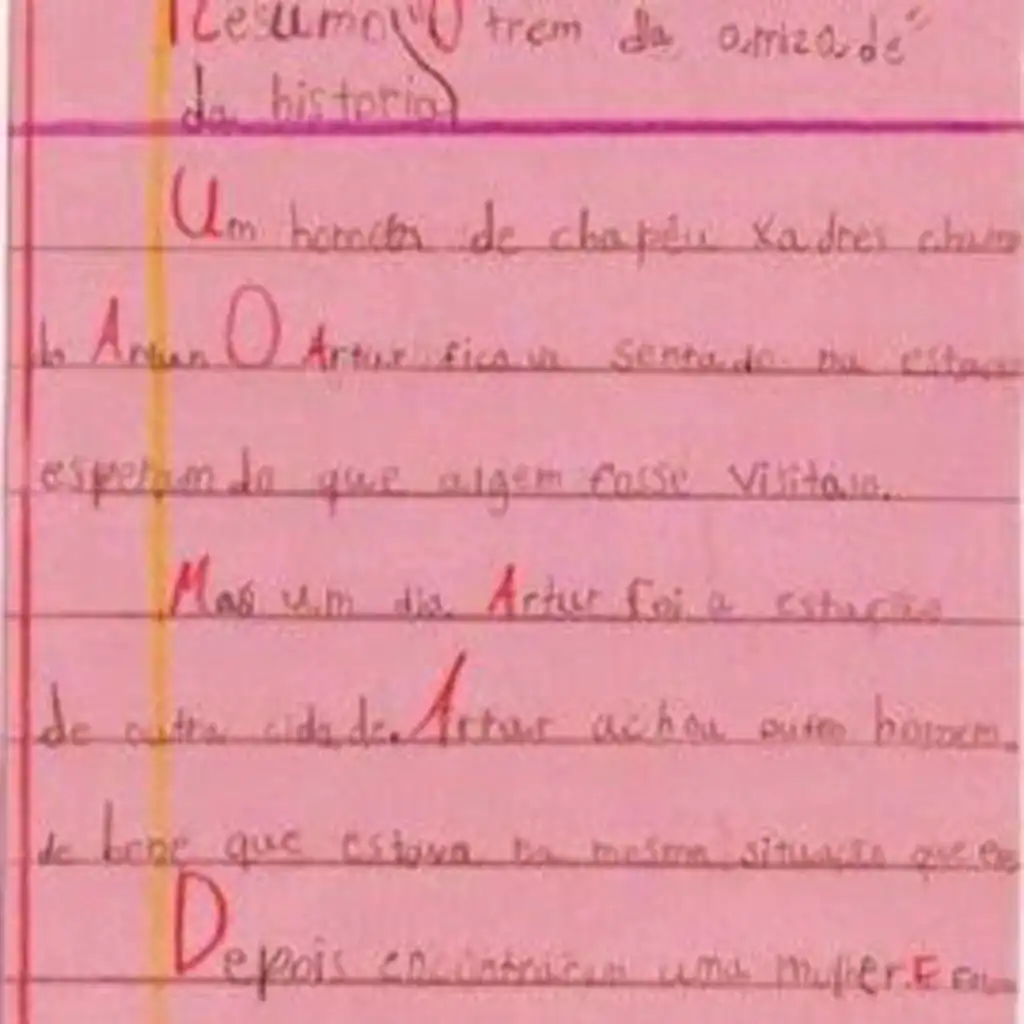 Resumo "O trem da amizade"
da historia
Um homem de chapéu xadres cham
do Artur O Artur ficava sentado na estaç
esperando que algem fosse visitalo.
Mas um dia Artur foi a estação
de outra cidade. Artur achou outro homem
de bone que estava na mesma situação que e
Depois encontraram uma mulher. E